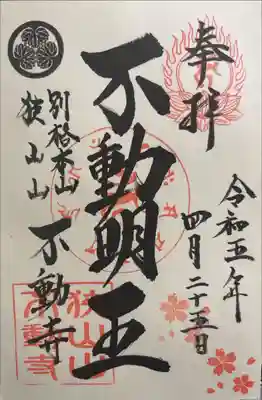 奉拝
令和五年
四月二十五日
不動明王
別格本山
狭山山
不動寺
狭山山
不動寺